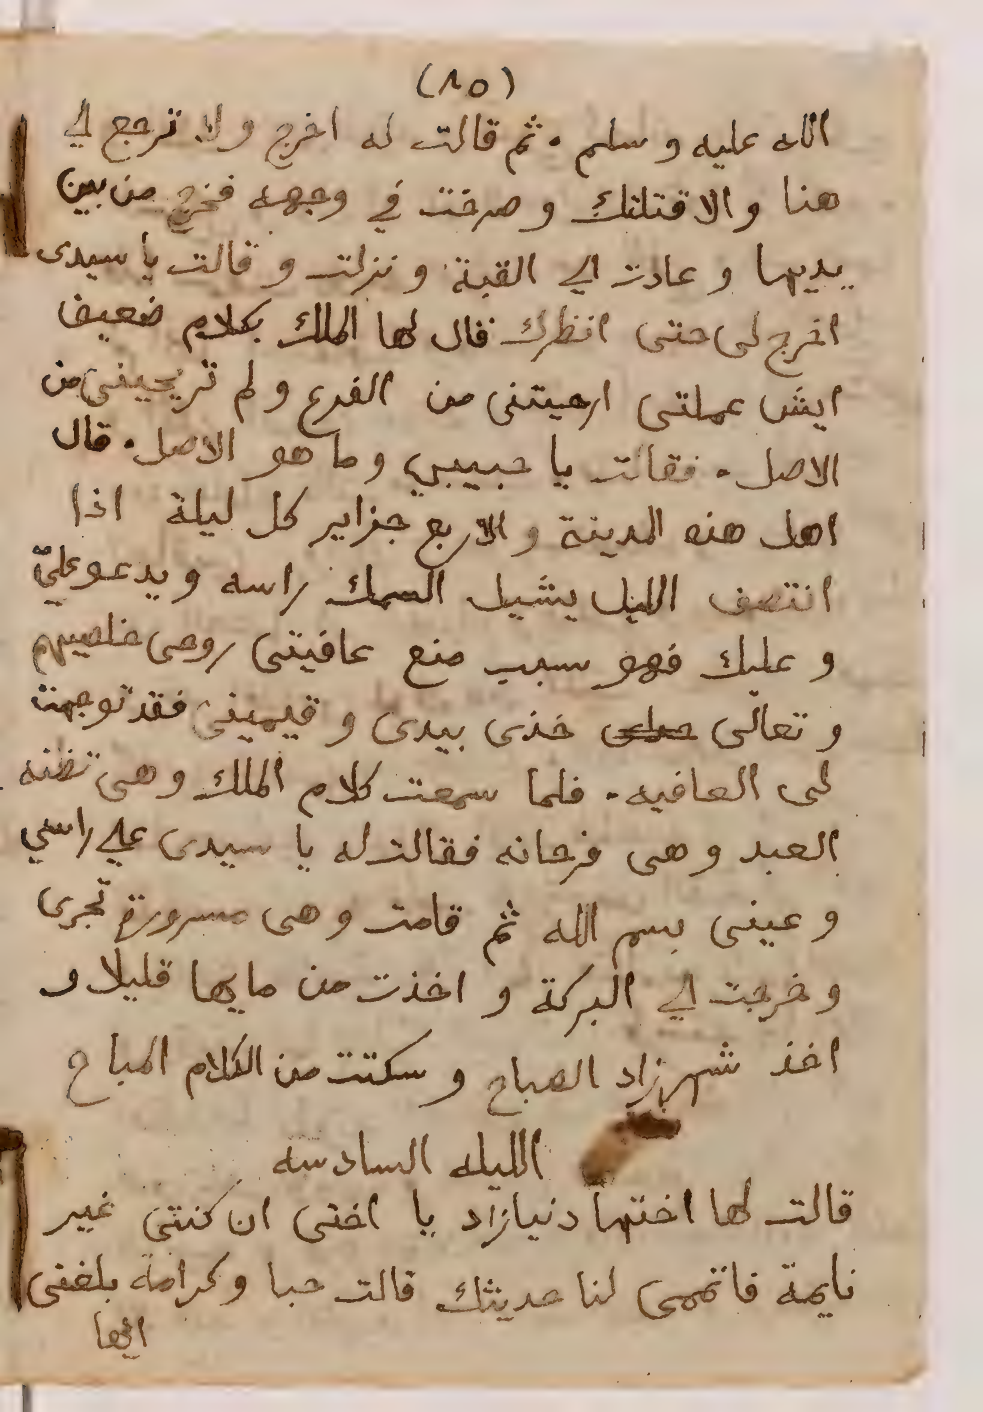 (٨٥)
الله عليه و سلم . ثم قالت له اخرج و لا ترجع الي
هنا و الا قتلتك و صرخت في وجهه فخرج من بين
يديها و عادت الي القبة و نزلت و قالت يا سيدى
اخرج لى حتى انظرك فقال لها الملك بكلام ضعيف
ايش عملتى ارحيتنى من الفرع و لم تريحينى من
الاصل . فقالت يا حبيبي و ما هو الاصل . قال
اهل هذه المدينة و الاربع جزاير كل ليلة اذا
انتصف الليل يشيل السمك راسه و يدعو عليّ
و عليك فهو سبب منع عافيتى روحى خلصيهم
و تعالى خذى بيدى و قيمينى فقد توجهت
لى العافيه . فلما سمعت كلام الملك و هى تظنه
العبد و هى فرحانه فقالت له يا سيدى علي راسي
و عينى بسم الله ثم قامت و هى مسرورة تجرى
و خرجت الي البركة و اخذت من مايها قليلا و
اخذ شهرزاد الصباح و سكتت من الكلام المباح
الليله السادسه
قالت لها اختها دنيازاد يا اختى ان كنتى غير
نايمة فاتممى لنا حديثك قالت حبا و كرامة بلغنى
انها